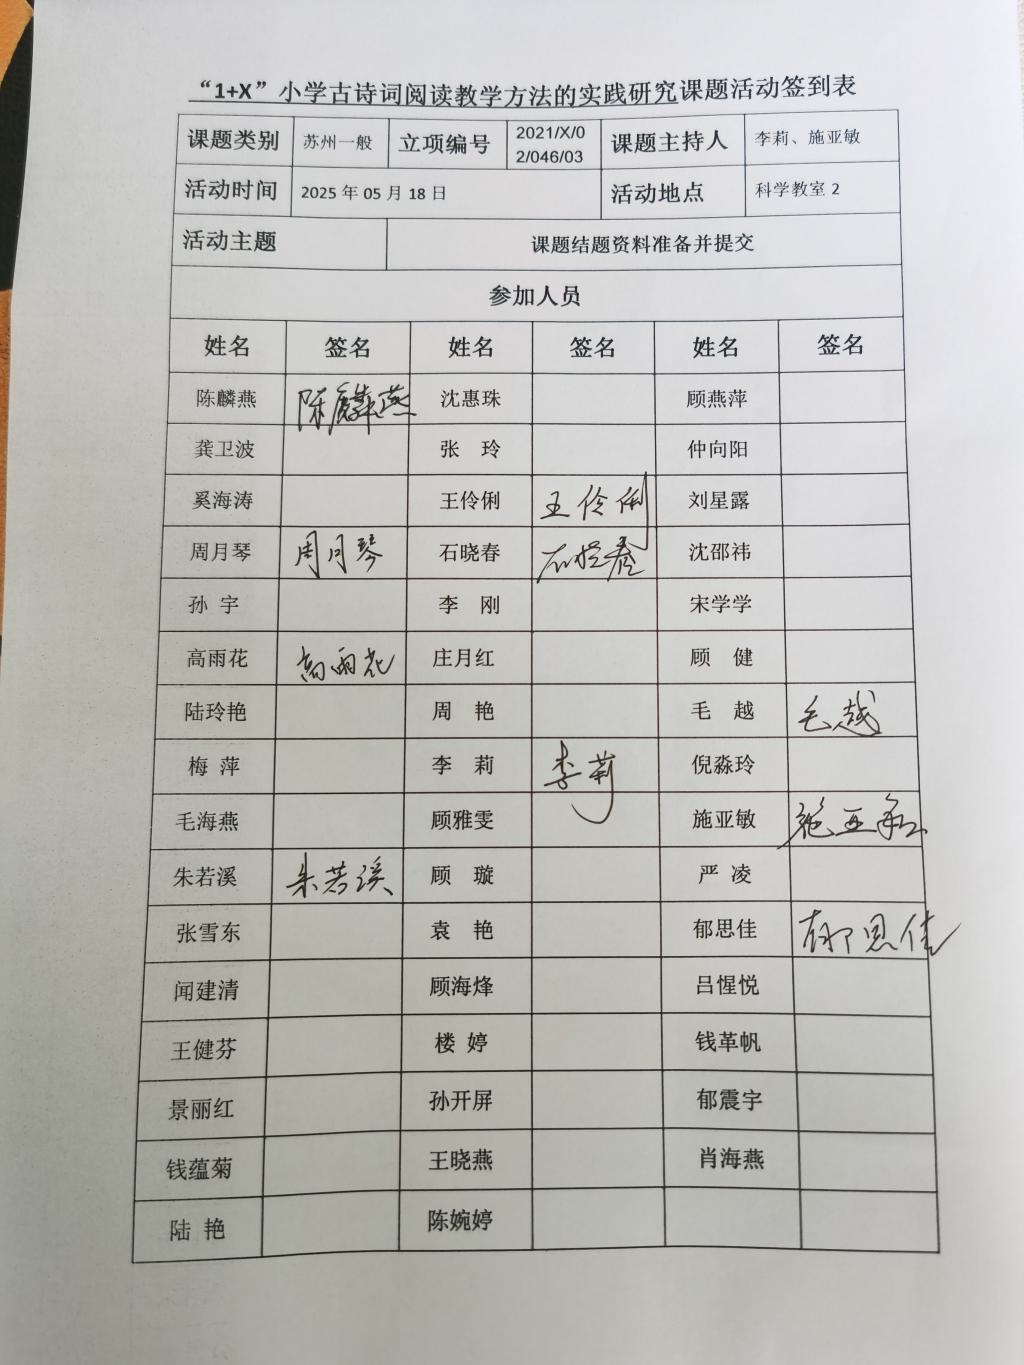 “1+X”小学古诗词阅读教学方法的实践研究课题活动签到表
课题类别 苏州一般 立项编号 2021/X/0 2/046/03 课题主持人 李莉、施亚敏
活动时间 2025 年 05 月 18 日 活动地点 科学教室 2
活动主题 课题结题资料准备并提交
参加人员
姓名 签名 姓名 签名 姓名 签名
陈麟燕 陈麟燕 沈惠珠 顾燕萍
龚卫波 张 玲 仲向阳
奚海涛 王伶俐 王伶俐 刘星露
周月琴 周月琴 石晓春 石晓春 沈邵祎
孙 宇 李 刚 宋学学
高雨花 高雨花 庄月红 顾 健
陆玲艳 周 艳 毛 越 毛越
梅 萍 李 莉 李莉 倪淼玲
毛海燕 顾雅雯 施亚敏 施亚敏
朱若溪 朱若溪 顾 璇 严 凌
张雪东 袁 艳 郁思佳 郁思佳
闻建清 顾海烽 吕惺悦
王健芬 楼 婷 钱革帆
景丽红 孙开屏 郁震宇
钱蕴菊 王晓燕 肖海燕
陆 艳 陈婉婷